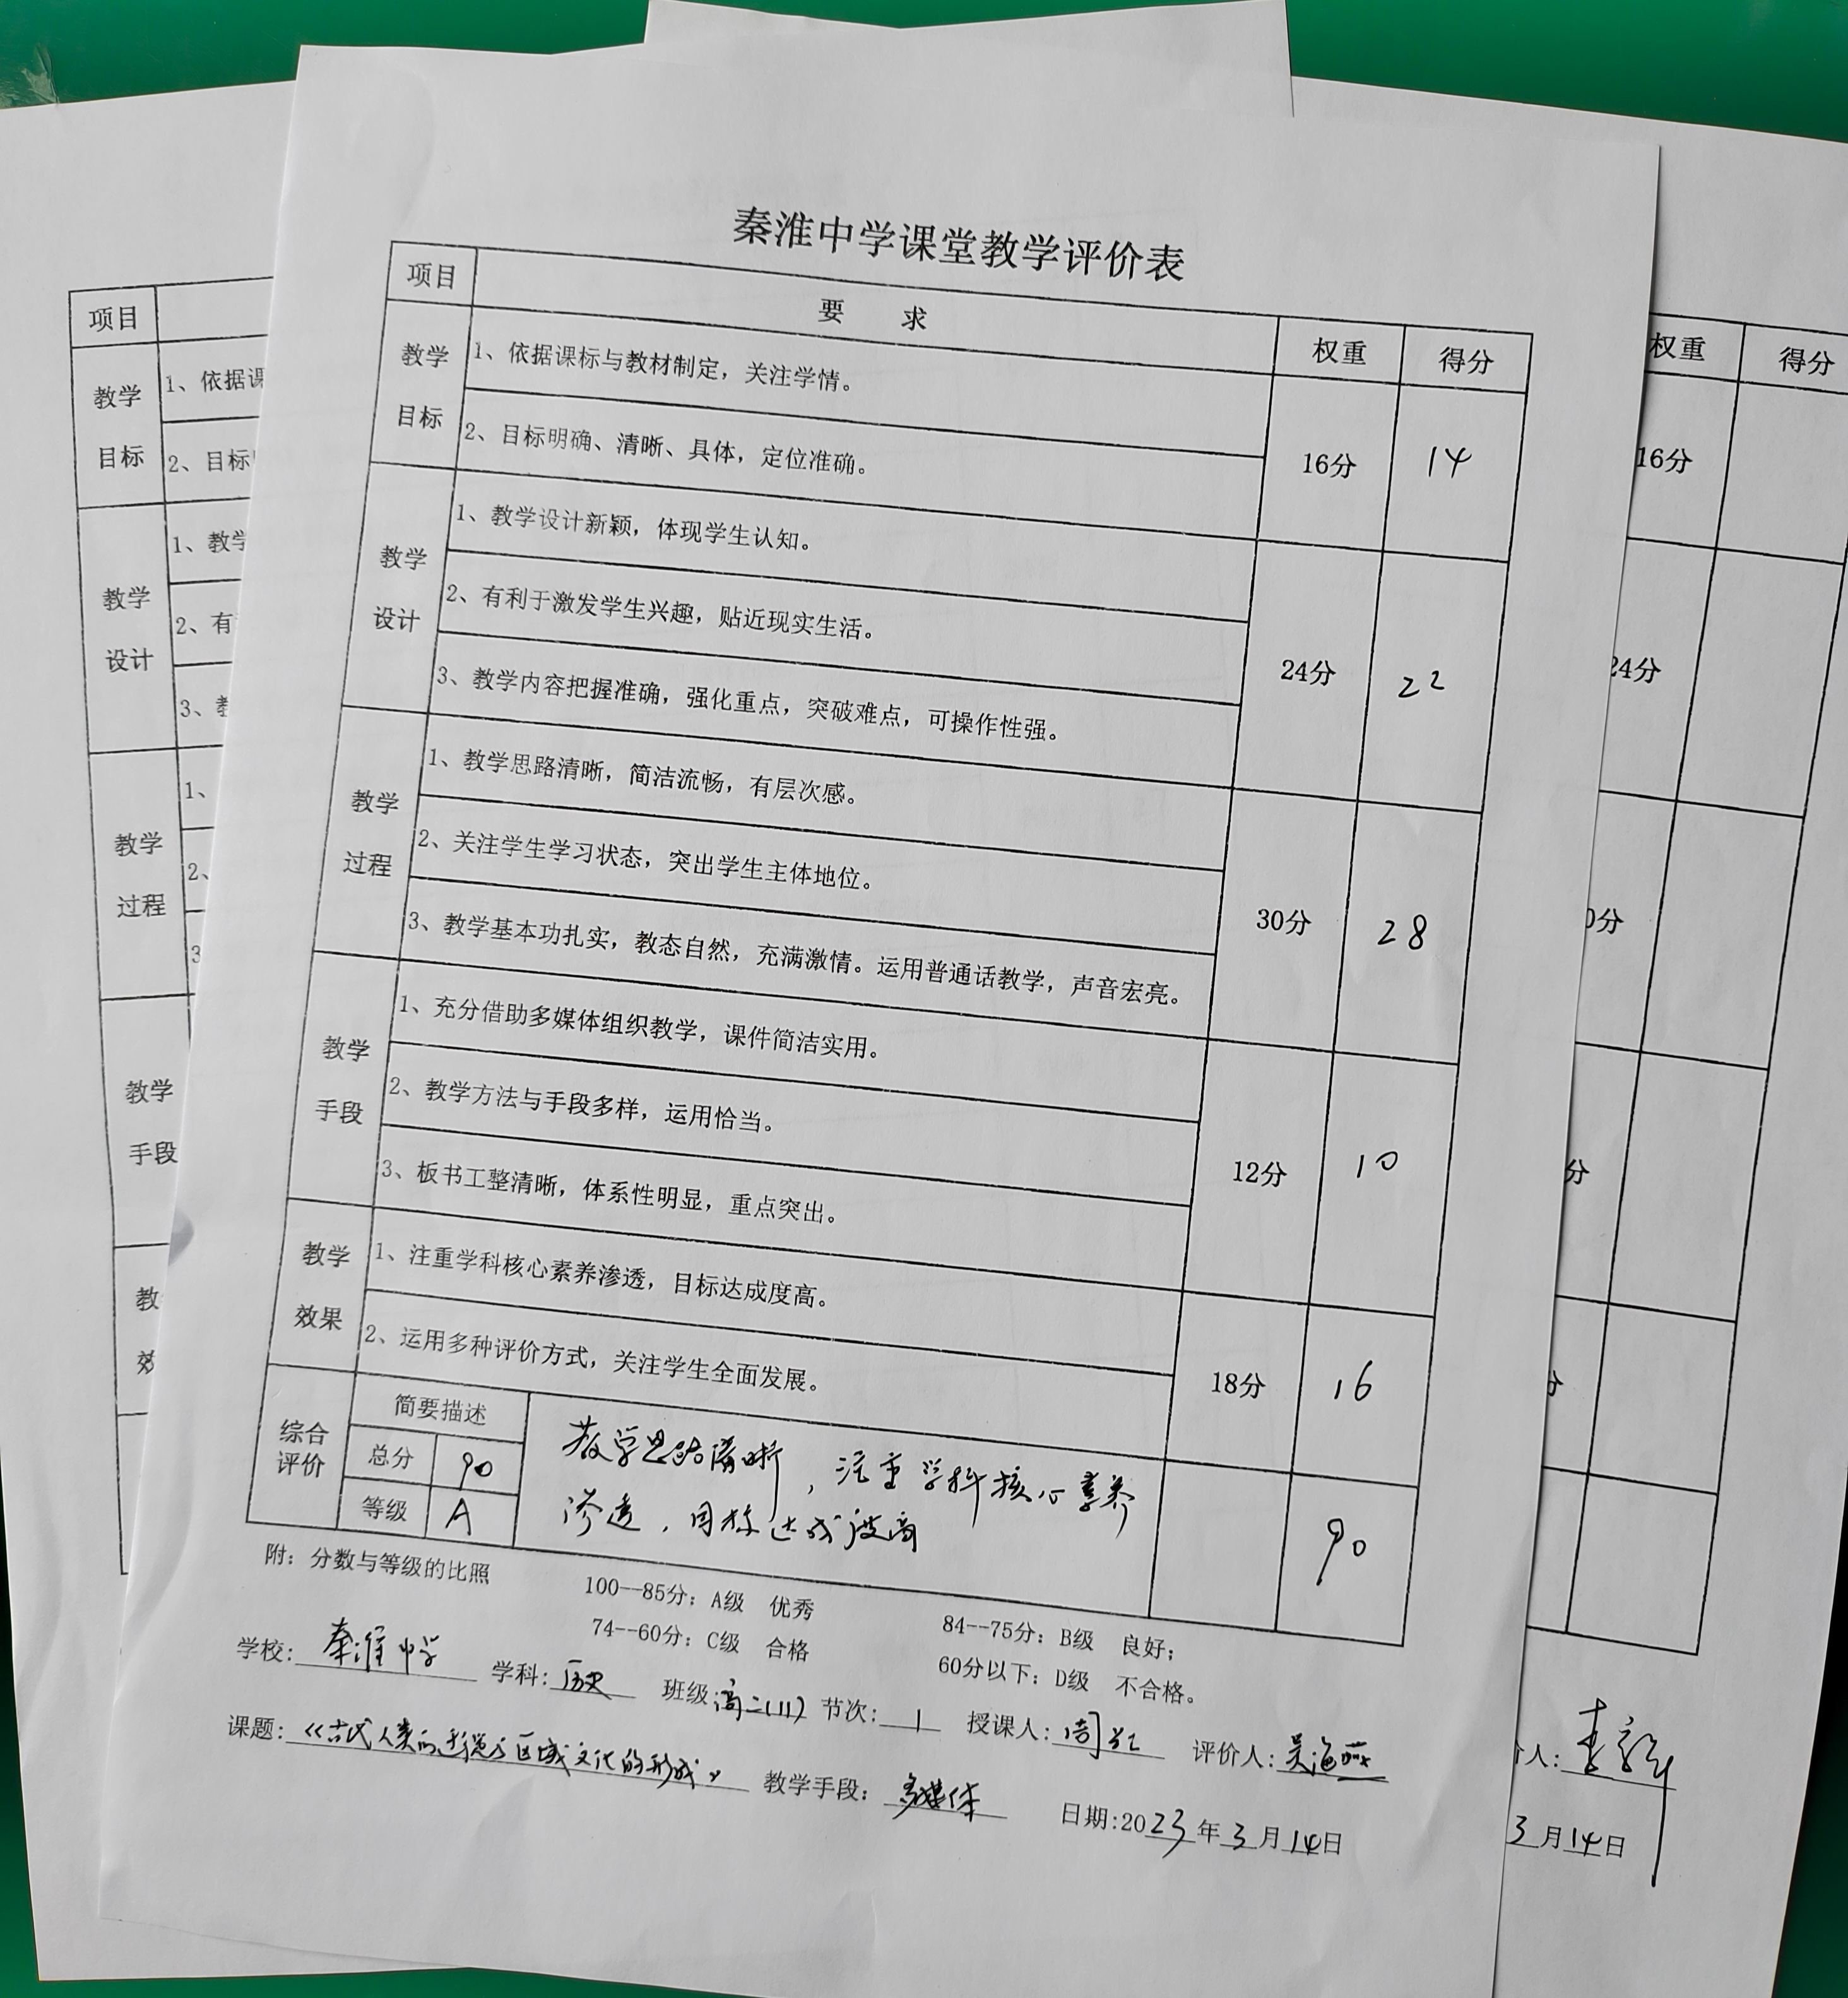 秦淮中学课堂教学评价表
项目 要 求 权重 得分
教学目标 1、依据课标与教材制定，关注学情。 16分 14
2、目标明确、清晰、具体，定位准确。
教学设计 1、教学设计新颖，体现学生认知。 24分 22
2、有利于激发学生兴趣，贴近现实生活。
3、教学内容把握准确，强化重点，突破难点，可操作性强。
教学过程 1、教学思路清晰，简洁流畅，有层次感。 30分 28
2、关注学生学习状态，突出学生主体地位。
3、教学基本功扎实，教态自然，充满激情。运用普通话教学，声音宏亮。
教学手段 1、充分借助多媒体组织教学，课件简洁实用。 12分 10
2、教学方法与手段多样，运用恰当。
3、板书工整清晰，体系性明显，重点突出。
教学效果 1、注重学科核心素养渗透，目标达成度高。 18分 16
2、运用多种评价方式，关注学生全面发展。
综合评价 简要描述 教学思路清晰，注重学科核心素养
总分 90 渗透，目标达成度高 90
等级 A
附：分数与等级的比照 100--85分：A级 优秀 84--75分：B级 良好；
74--60分：C级 合格 60分以下：D级 不合格。
学校：秦淮中学 学科：历史 班级：高二(11) 节次：1 授课人：周 评价人：吴海
课题：《古代人类的迁徙与区域文化的形成》 教学手段：多媒体 日期：2023年3月14日
项目
教学目标 1、依据课
2、目标
教学设计 1、教学
2、有
3、教
教学过程 1、
2、
3
教学手段
教
效
权重 得分
16分
24分
0分
分
分
人：李
3月14日